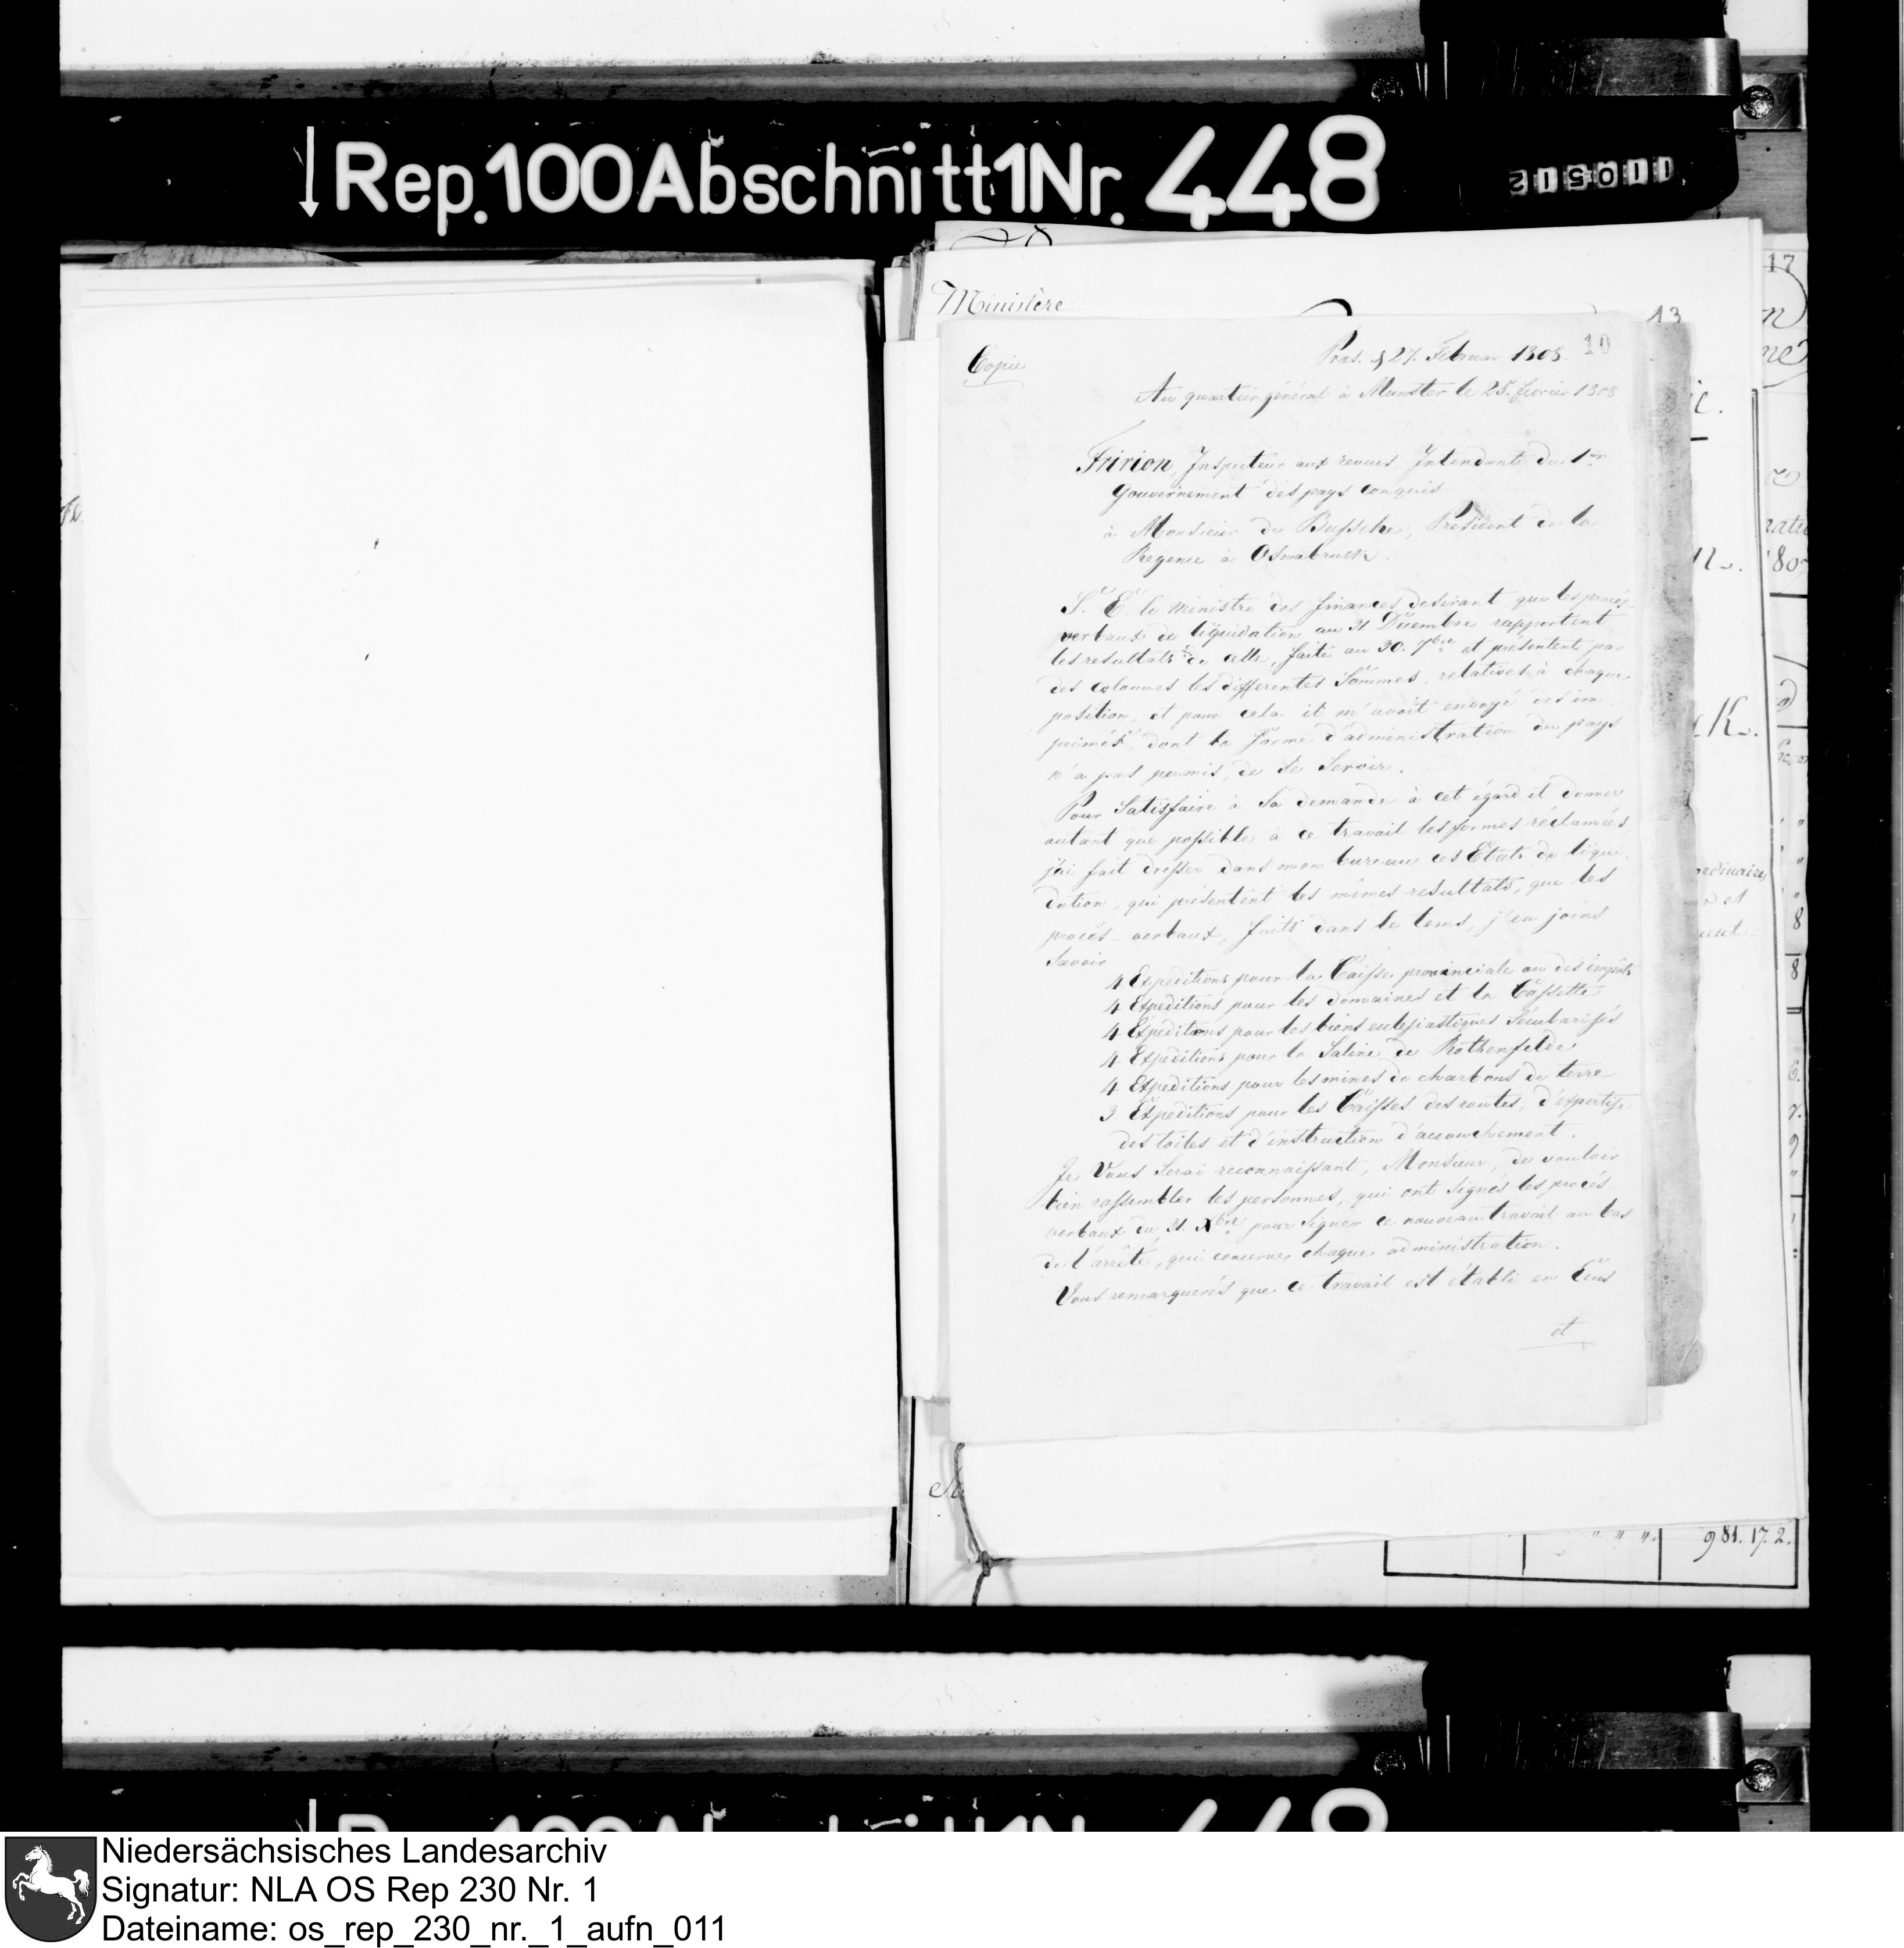 Rep.100Abschnitt1Nr. 448
110512
17
Ministère
13
10
Copie
Pras. d 27. Februar 1808.
Au quartier général à Munster le 25. fevrier 1808
Fririon, Inspecteur aux revues, Intendant du 1er
Gouvernement des pays conquis
à Monsieur de Bussche, President de la
Regence à Osnabruck.
S. E. le ministre des finances desirant que les procés
verbaux de liquidation au 31 Décembre rapportent
les resultats de celle, faite au 30. 7bre et présentent par
des colonnes les differentes Sommes, relatives à chaque
position, et pour cela il m'avoit envoyé des im
primés, dont la forme d'administration du pays
n'a pas permis, de se servir.
Pour Satisfaire à Sa demande à cet égard et donner
autant que possible à ce travail les formes réclamées
j'ai fait dresser dans mon bureau ces Etats de liqui
dation, qui présentent les mêmes resultats, que les
procés-verbaux, faits dans le tems, j'en joins
Savoir
4 Expeditions pour la Caisse provinciale ou des impots
4 Expeditions pour les domaines et la Cassette
4 Expeditions pour les biens eclesiastiques Sécularisés
4 Expeditions pour la Saline de Rothenfelde
4 Expeditions pour les mines de charbons de terre
3 Expeditions pour les Caisses des routes, d'expertise
des toiles et d'instruction d'accouchement.
Je Vous Serai reconnaissant, Monsieur, de vouloir
bien rassembler les personnes, qui ont Signés les procés
verbaux du 31. Xbre pour Signer ce nouveau travail au bas
de l'arrêté, qui concerne chaque administration.
Vous remarquerés que ce travail est établi en Ecus
et
981. 17. 2.
Niedersächsisches Landesarchiv
Signatur: NLA OS Rep 230 Nr. 1
Dateiname: os_rep_230_nr._1_aufn_011